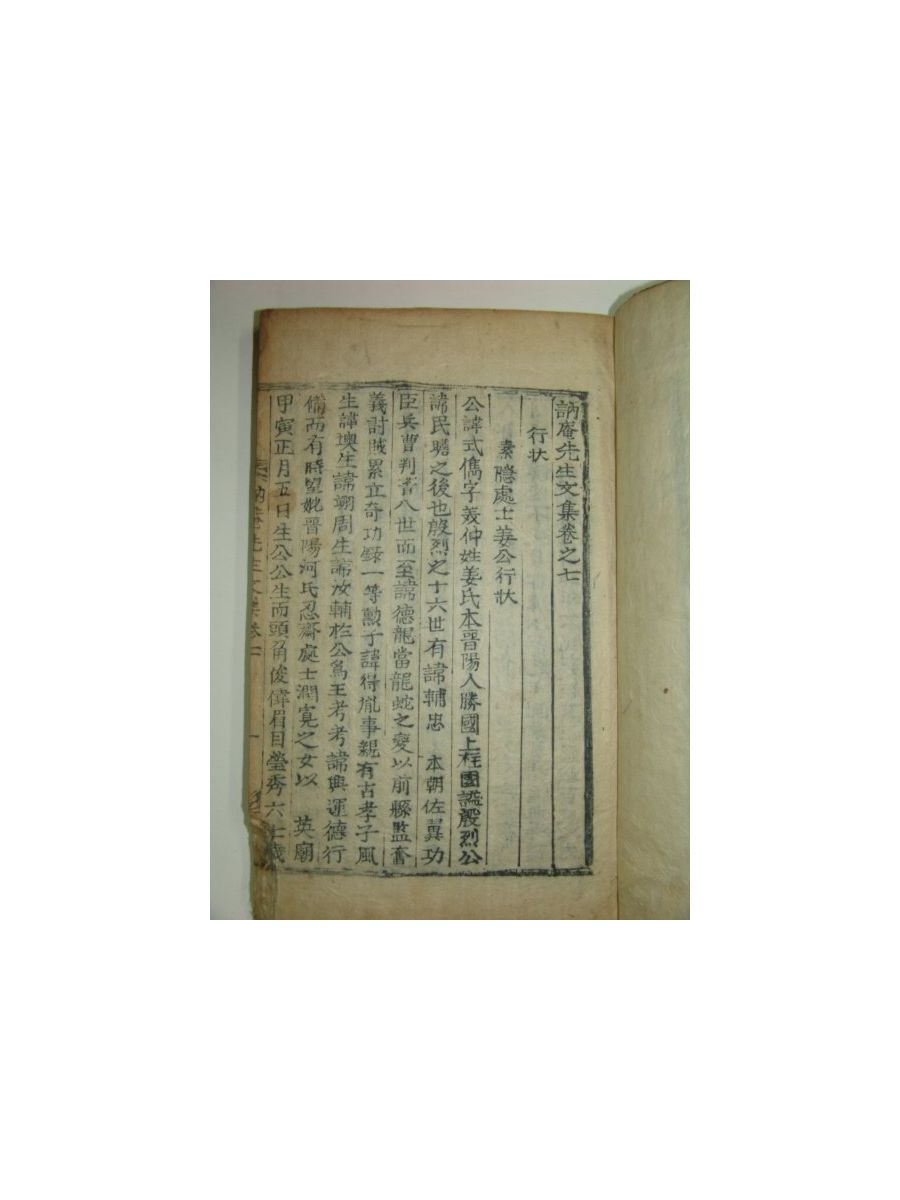 訥庵先生文集卷之七
行狀
素隱處士姜公行狀
公諱式儁字義仲姓姜氏本晋陽人勝國上柱國諡殷烈公
諱民瞻之後也殷烈之十六世有諱輔忠 本朝佐翼功
臣兵曹判書八世而至諱德龍當龍蛇之變以前縣監奮
義討賊累立奇功錄一等勳子諱得胤事親有古孝子風
生諱墺生諱翊周生諱汝輔於公爲王考考諱興運德行
備而有時望妣晋陽河氏忍齋處士潤寬之女以 英廟
甲寅正月五日生公公生而頭角俊偉眉目瑩秀六七歲
訥庵先生文集卷七 一